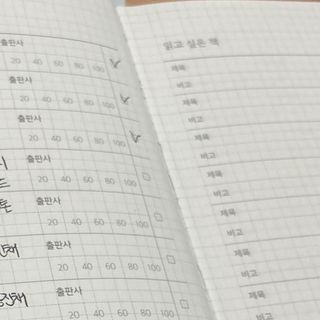 출판사
20 40 60 80 100
출판사
20 40 60 80 100
출판사
20 40 60 80 100
출판사
20 40 60 80 100
출판사
20 40 60 80 100
출판사
20 40 60 80 100
출판사
20 40 60 80 100
읽고 싶은 책
제목
비고
제목
비고
제목
비고
제목
비고
제목
비고
제목
비고
제목
비고